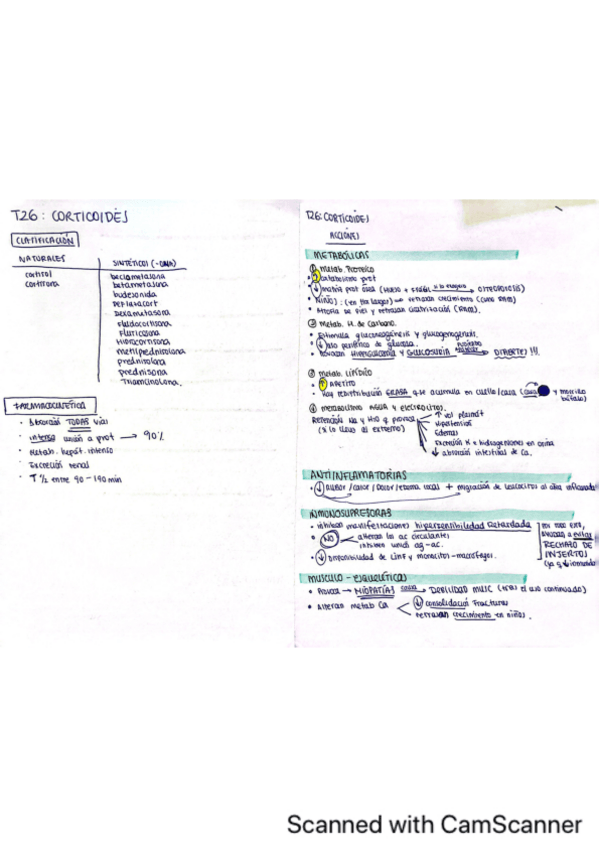 T26: CORTICOIDES
CLASIFICACIÓN
NATURALES
cortisol
cortisona
SINTÉTICOS (-ONA)
beclametasona
betametasona
budesonida
DEFLAZACORT
Dexametasona
Fludocortisona
Fluticasona
Hidrocortisona
metilprednisolona
prednisolona
prednisona
Triamcinolona.
FARMACOCINÉTICA
· Absorción TODAS vías
· intensa unión a prot → 90%
· Metab. hepát. intenso
· Excreción renal
· T 1/2 entre 90-190 min
T26: CORTICOIDES
ACCIONES
METABÓLICAS
① Metab. Proteico
↑ catabolismo prot
↓ matriz prot ósea (Hueso + frágil → OSTEOPOROSIS)
• NIÑOS: (en tto largos) → retrasan crecimiento (RAM)
• Atrofia de piel y retrasan cicatrización (RAM).
② Metab. H. de Carbono.
• Estimula gluconeogénesis y glucogenogénesis.
• ↓ uso periférico de glucosa.
• Provocan HIPERGLUCEMIA y GLUCOSURIA → DIABETES!!!.
③ Metab. LIPÍDICO
• ↑ APETITO
• Hay redistribución GRASA q se acumula en cuello/cara (cara y morrillo búfalo)
④ METABOLISMO AGUA y ELECTROLITOS.
RETENCIÓN Na y H2O q provoca
(si lo llevas al extremo)
↑ vol plasmát
Hipertensión
Edemas
Excreción K e hidrogeniones en orina
↓ absorción intestinal de Ca.
ANTIINFLAMATORIAS
• ↓ Rubor/calor/Dolor/edema local + migración de leucocitos al área inflamada
INMUNOSUPRESORAS
• inhiben manifestaciones hipersensibilidad Retardada
• NO
alteran los ac circulantes
inhiben unión ag-ac.
• ↓ Disponibilidad de LINF y monocitos-macrófagos.
ayudan a evitar
RECHAZO DE
INJERTOS
MUSCULO-ESQUELÉTICAS
• Provocan → MIOPATÍAS causa → DEBILIDAD MUSC (tras el uso continuado)
• Alteran metab Ca
↓ consolidación Fracturas
retrasan crecimiento en niños.
Scanned with CamScanner